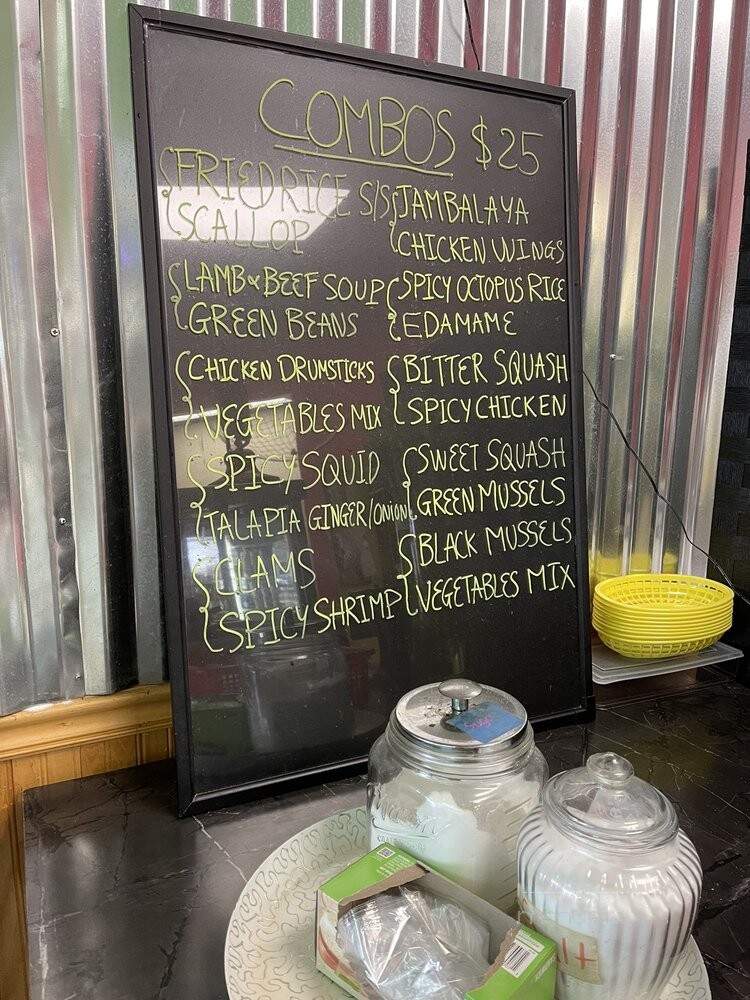 COMBOS $25
FRIED RICE S/S
SCALLOP
LAMB & BEEF SOUP
GREEN BEANS
CHICKEN DRUMSTICKS
VEGETABLES MIX
SPICY SQUID
TALAPIA GINGER/ONION
CLAMS
SPICY SHRIMP
JAMBALAYA
CHICKEN WINGS
SPICY OCTOPUS RICE
EDAMAME
BITTER SQUASH
SPICY CHICKEN
SWEET SQUASH
GREEN MUSSELS
BLACK MUSSELS
VEGETABLES MIX